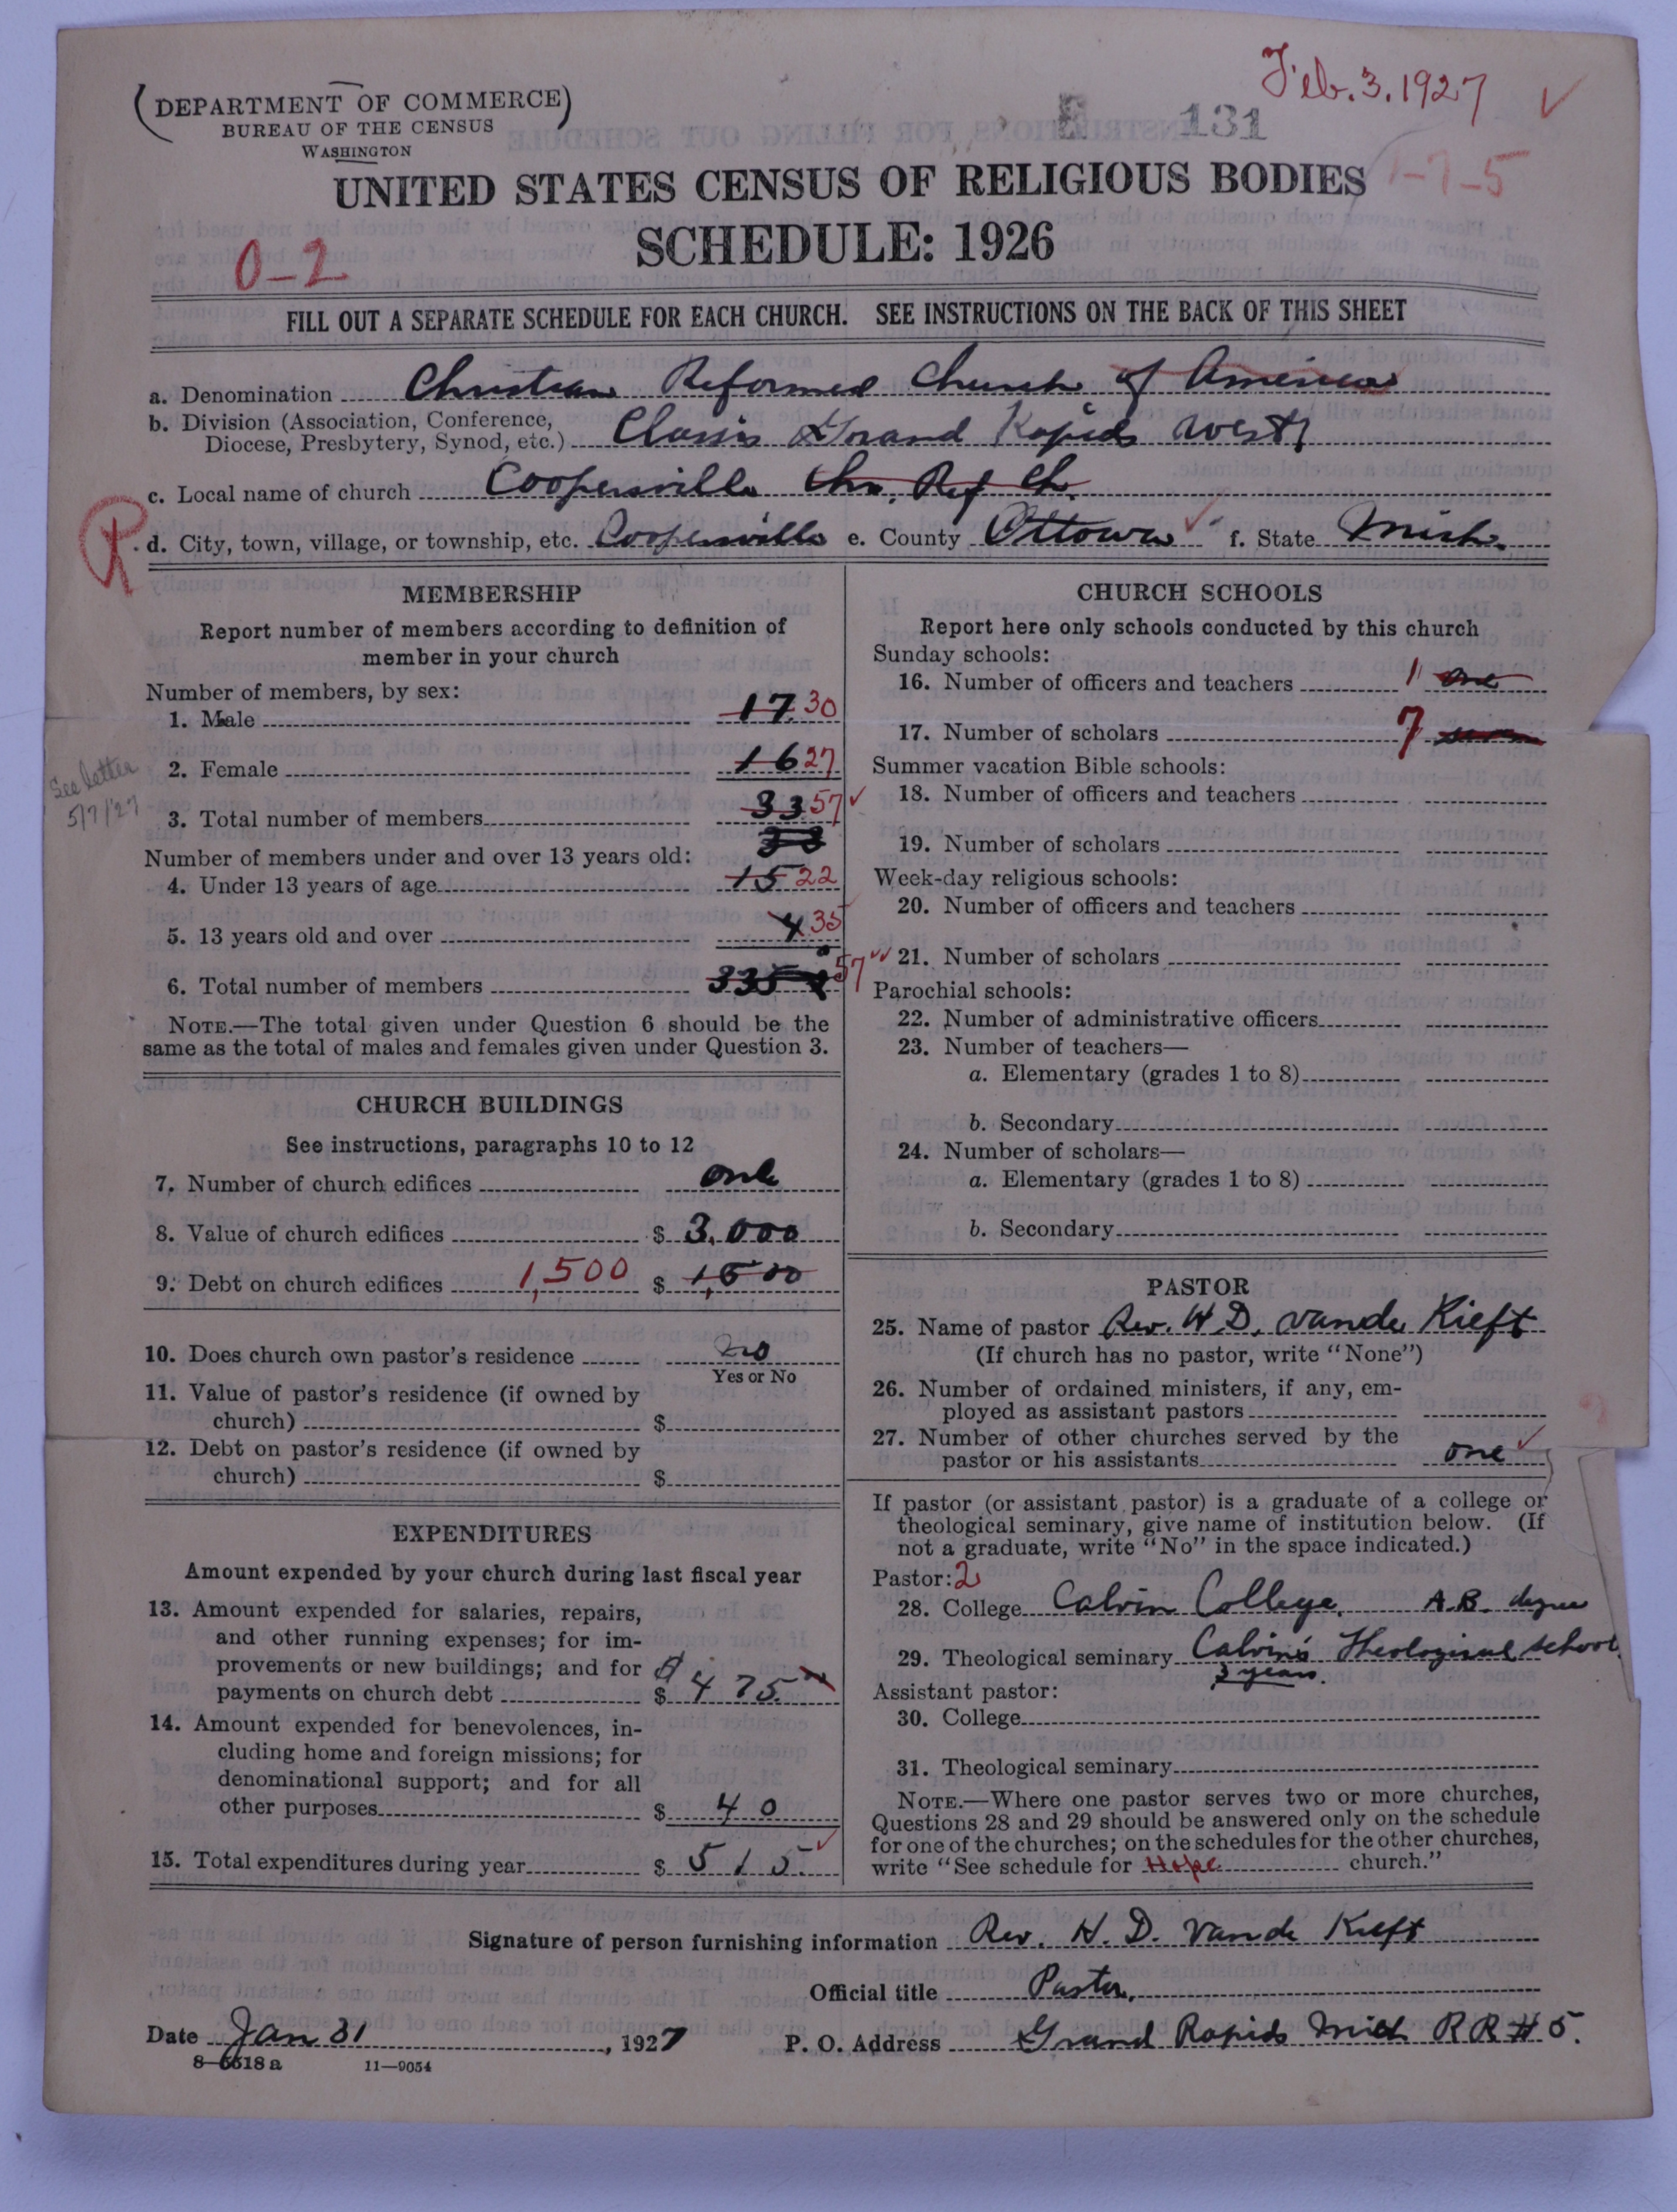 Feb. 3. 1927 ✓
(DEPARTMENT OF COMMERCE)
BUREAU OF THE CENSUS
WASHINGTON
E 131
1-7-5
UNITED STATES CENSUS OF RELIGIOUS BODIES
SCHEDULE: 1926
0-2
FILL OUT A SEPARATE SCHEDULE FOR EACH CHURCH. SEE INSTRUCTIONS ON THE BACK OF THIS SHEET
a. Denomination Christian Reformed Church of America
b. Division (Association, Conference,
Diocese, Presbytery, Synod, etc.) Classis Grand Rapids West
c. Local name of church Coopersville Chr. Ref Ch.
R d. City, town, village, or township, etc. Coopersville e. County Ottowa ✓ f. State Mich.
MEMBERSHIP
Report number of members according to definition of
member in your church
Number of members, by sex:
1. Male 17 30
2. Female 16 27
See letter
5/7/27
3. Total number of members 33 57 ✓
33
Number of members under and over 13 years old:
4. Under 13 years of age 15 22
5. 13 years old and over 35
6. Total number of members 57 ✓✓
NOTE.—The total given under Question 6 should be the
same as the total of males and females given under Question 3.
CHURCH BUILDINGS
See instructions, paragraphs 10 to 12
7. Number of church edifices one
8. Value of church edifices $ 3,000
9. Debt on church edifices 1,500 $ 1,500
10. Does church own pastor's residence no
Yes or No
11. Value of pastor's residence (if owned by
church) $
12. Debt on pastor's residence (if owned by
church) $
EXPENDITURES
Amount expended by your church during last fiscal year
13. Amount expended for salaries, repairs,
and other running expenses; for im-
provements or new buildings; and for
payments on church debt $ $ 475.00
14. Amount expended for benevolences, in-
cluding home and foreign missions; for
denominational support; and for all
other purposes $ 40
15. Total expenditures during year $ 515. ✓
CHURCH SCHOOLS
Report here only schools conducted by this church
Sunday schools:
16. Number of officers and teachers 1 one
17. Number of scholars 7 seven
Summer vacation Bible schools:
18. Number of officers and teachers
19. Number of scholars
Week-day religious schools:
20. Number of officers and teachers
21. Number of scholars
Parochial schools:
22. Number of administrative officers
23. Number of teachers—
a. Elementary (grades 1 to 8)
b. Secondary
24. Number of scholars—
a. Elementary (grades 1 to 8)
b. Secondary
PASTOR
25. Name of pastor Rev. H. D. Vande Kieft
(If church has no pastor, write "None")
26. Number of ordained ministers, if any, em-
ployed as assistant pastors
27. Number of other churches served by the
pastor or his assistants one ✓
If pastor (or assistant pastor) is a graduate of a college or
theological seminary, give name of institution below. (If
not a graduate, write "No" in the space indicated.)
Pastor: 2
28. College Calvin College. A.B. degree
29. Theological seminary Calvin's Theological School
3 years.
Assistant pastor:
30. College
31. Theological seminary
NOTE.—Where one pastor serves two or more churches,
Questions 28 and 29 should be answered only on the schedule
for one of the churches; on the schedules for the other churches,
write "See schedule for Hope church."
Signature of person furnishing information Rev. H. D. Vande Kieft
Official title Pastor.
Date Jan 31, 1927 P. O. Address Grand Rapids Mich R R # 5.
8-6618 a 11-9054